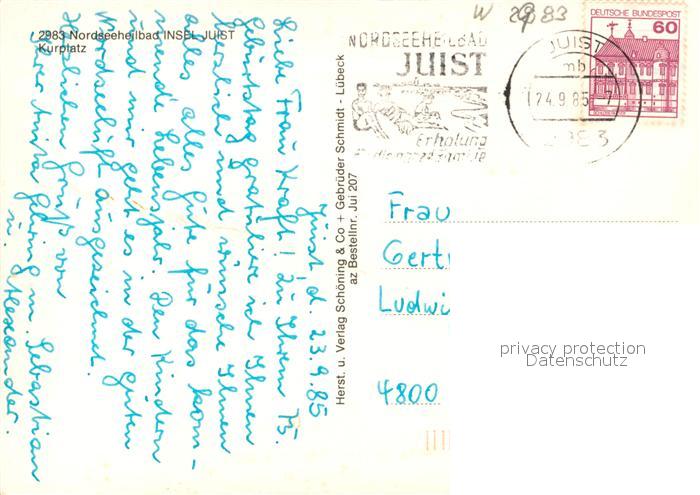 2983 Nordseeheilbad INSEL JUIST
Kurplatz
Juist d. 23.9.85
Liebe Frau Kraft! Zu Ihrem 75.
Geburtstag gratuliere ich Ihnen
herzlich und wünsche Ihnen
alles alles Gute für das kom-
mende Lebensjahr. Den Kindern
und mir geht es in der guten
Nordseeluft ausgezeichnet.
Herzlichen Gruß von
Ihrer Anita m. Sebastian
u. Alexander.
Herst. u. Verlag Schöning & Co + Gebrüder Schmidt - Lübeck
az Bestellnr. Jui 207
W 2983
NORDSEEHEILBAD
JUIST
Erholung
für die ganze Familie
JUIST
mb
24.9.85-7
2983
DEUTSCHE BUNDESPOST
60
Frau
Gert
Ludwi
4800
privacy protection
Datenschutz